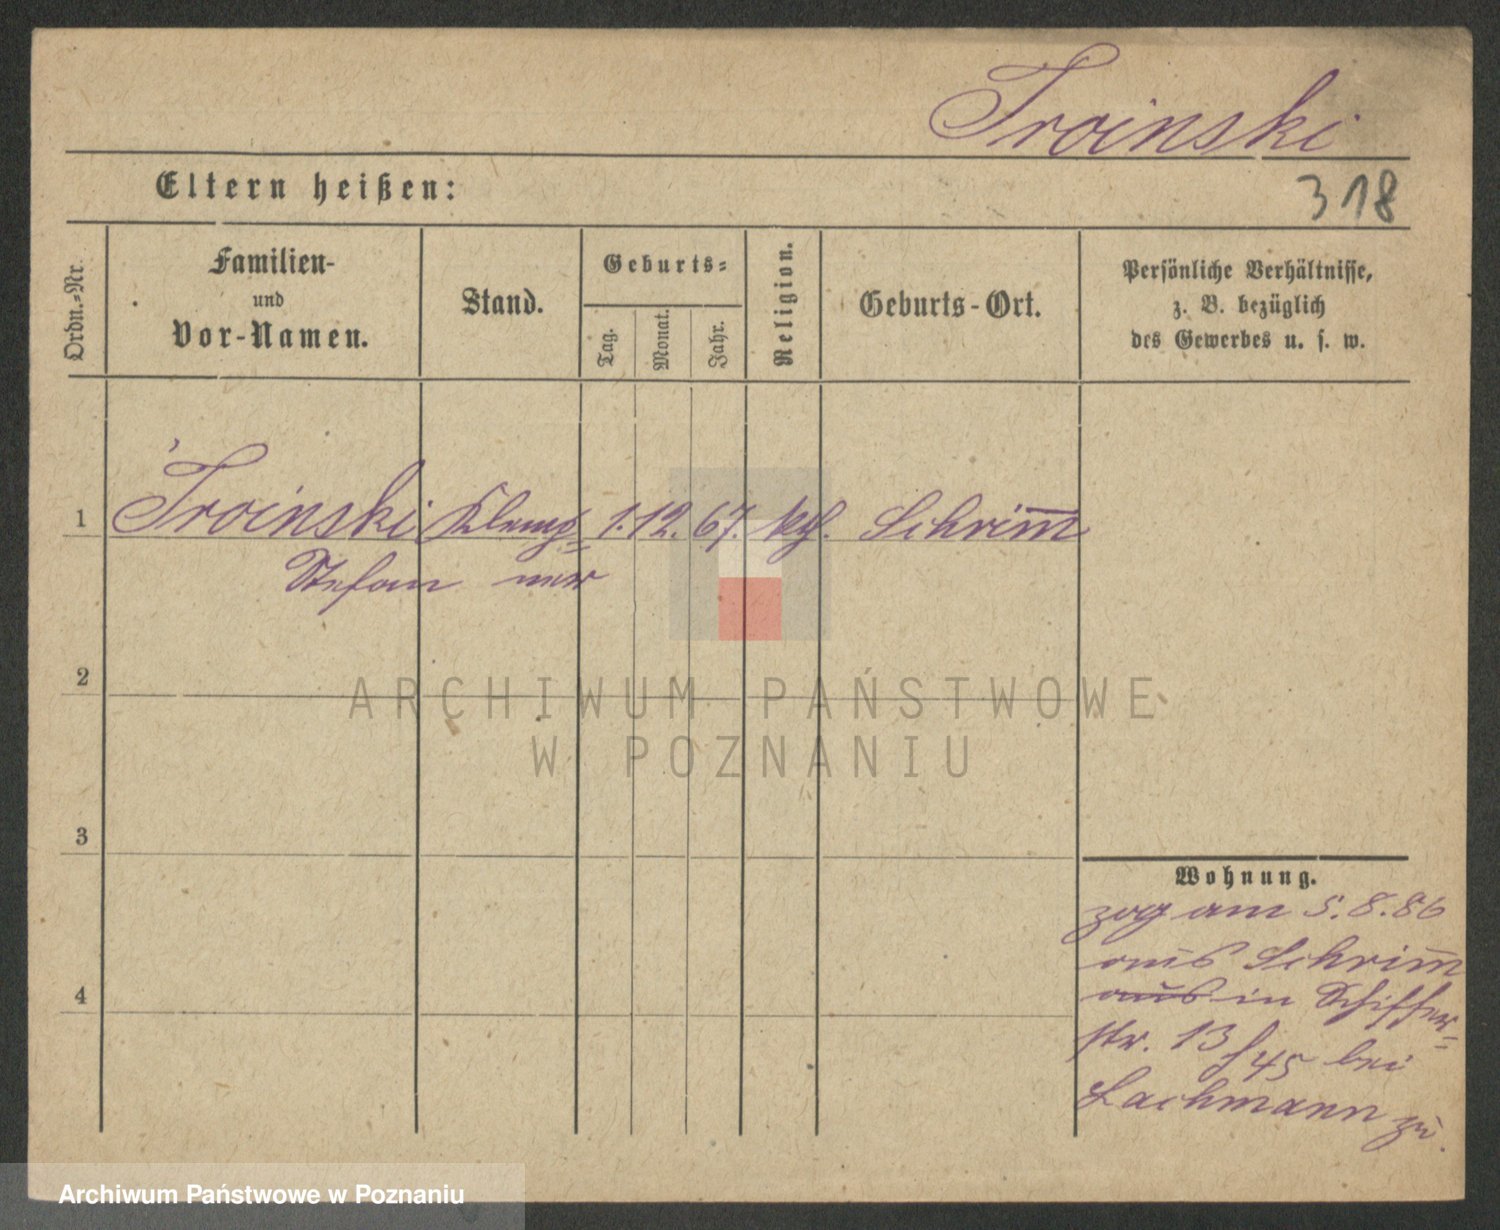 Troinski
Eltern heißen:
318
Ordn.=Nr.
Familien-
und
Vor-Namen.
Stand.
Geburts=
Tag.
Monat.
Jahr.
Religion.
Geburts-Ort.
Persönliche Verhältnisse,
z. B. bezüglich
des Gewerbes u. s. w.
1 Troinski Klemp= 1. 12. 67. kth. Schrim̅
Stefan ner
2
ARCHIWUM PAŃSTWOWE
W POZNANIU
3
Wohnung.
zog am 5.8.86
aus Schrim̅
aus in Schiffer=
str. 13/45 bei
Lachmann zu.
4
Archiwum Państwowe w Poznaniu